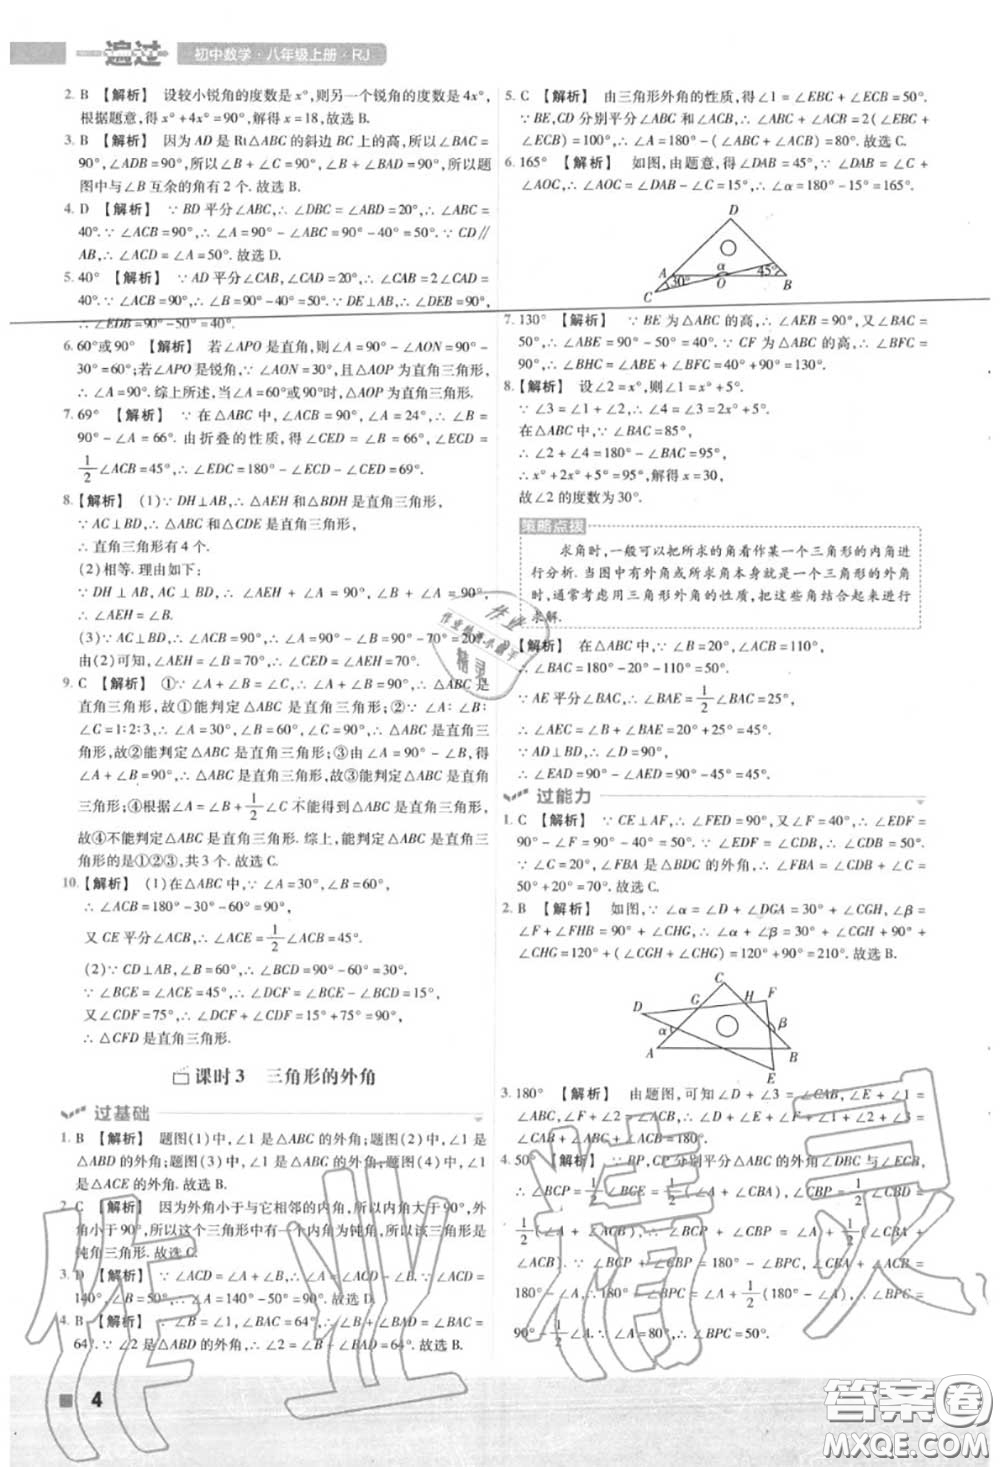 一遍过 初中数学·八年级上册·RJ
2. B 【解析】 设较小锐角的度数是x°,则另一个锐角的度数是4x°,
根据题意,得x°+4x°=90°,解得x=18.故选B.
3. B 【解析】 因为AD是Rt△ABC的斜边BC上的高,所以∠BAC=
90°,∠ADB=90°,所以∠B+∠C=90°,∠B+∠BAD=90°,所以题
图中与∠B互余的角有2个.故选B.
4. D 【解析】 ∵BD平分∠ABC,∴∠DBC=∠ABD=20°,∴∠ABC=
40°.∵∠ACB=90°,∴∠A=90°-∠ABC=90°-40°=50°.∵CD∥
AB,∴∠ACD=∠A=50°.故选D.
5. 40° 【解析】 ∵AD平分∠CAB,∠CAD=20°,∴∠CAB=2∠CAD=
40°.∵∠ACB=90°,∴∠B=90°-40°=50°.∵DE⊥AB,∴∠DEB=90°,
∴∠EDB=90°-50°=40°.
6. 60°或90° 【解析】 若∠APO是直角,则∠A=90°-∠AON=90°-
30°=60°;若∠APO是锐角,∵∠AON=30°,且△AOP为直角三角形,
∴∠A=90°.综上所述,当∠A=60°或90°时,△AOP为直角三角形.
7. 69° 【解析】 ∵在△ABC中,∠ACB=90°,∠A=24°,∴∠B=
90°-∠A=66°.由折叠的性质,得∠CED=∠B=66°,∠ECD=
1/2∠ACB=45°,∴∠EDC=180°-∠ECD-∠CED=69°.
8. 【解析】 (1)∵DH⊥AB,∴△AEH和△BDH是直角三角形,
∵AC⊥BD,∴△ABC和△CDE是直角三角形,
∴直角三角形有4个.
(2)相等.理由如下:
∵DH⊥AB,AC⊥BD,∴∠A+∠AEH=90°,∠A+∠B=90°,
∴∠AEH=∠B.
(3)∵∠A+∠B=90°,∴∠B=90°-∠A=90°-70°=20°.
由(2)可知,∠AEH=∠B,∴∠AEH=20°.
9. C 【解析】 ①∵∠A+∠B=∠C,∴∠C=90°,∴△ABC是
直角三角形,故①能判定△ABC是直角三角形;②∵∠A:∠B:
∠C=1:2:3,∴∠A=30°,∠B=60°,∠C=90°,∴△ABC是直角三
角形,故②能判定△ABC是直角三角形;③由∠A=90°-∠B,得
∠A+∠B=90°,∴△ABC是直角三角形,故③能判定△ABC是直角
三角形;④根据∠A=∠B+1/2∠C不能得到△ABC是直角三角形,
故④不能判定△ABC是直角三角形.综上,能判定△ABC是直角三
角形的是①②③,共3个.故选C.
10. 【解析】 (1)在△ABC中,∵∠A=30°,∠B=60°,
∴∠ACB=180°-30°-60°=90°,
又CE平分∠ACB,∴∠ACE=1/2∠ACB=45°.
(2)∵CD⊥AB,∠B=60°,∴∠BCD=90°-60°=30°.
∵∠BCE=∠ACE=45°,∴∠DCF=∠BCE-∠BCD=15°,
又∠CDF=75°,∴∠DCF+∠CDF=15°+75°=90°,
∴△CFD是直角三角形.
课时3 三角形的外角
过基础
1. B 【解析】 题图(1)中,∠1是△ABC的外角;题图(2)中,∠1是
△ABD的外角;题图(3)中,∠1是△ABC的外角;题图(4)中,∠1是
△ACE的外角.故选B.
2. C 【解析】 因为外角小于与它相邻的内角,所以内角大于90°,外
角小于90°,所以这个三角形中有一个内角为钝角,所以这个三角形是
钝角三角形.故选C.
3. D 【解析】 ∵∠ACD=∠A+∠B,∴∠A=∠ACD-∠B.∵∠ACD=
140°,∠B=50°,∴∠A=140°-50°=90°.故选D.
4. B 【解析】 ∵∠B=∠1,∠BAC=64°,∴∠1+∠BAD=∠BAC=
64°.∵∠2是△ABD的外角,∴∠2=∠B+∠BAD=64°.故选B.
5. C 【解析】 由三角形外角的性质,得∠1=∠EBC+∠ECB=50°.
∵BE,CD分别平分∠ABC和∠ACB,∴∠ABC+∠ACB=2(∠EBC+
∠ECB)=100°,∴∠A=180°-(∠ABC+∠ACB)=80°.故选C.
6. 165° 【解析】 如图,由题意,得∠DAB=45°,∵∠DAB=∠C+
∠AOC,∴∠AOC=∠DAB-∠C=15°,∴∠α=180°-15°=165°.
D
α
A 30° 45°
O B
C
7. 130° 【解析】 ∵BE为△ABC的高,∴∠AEB=90°,又∠BAC=
50°,∴∠ABE=90°-50°=40°.∵CF为△ABC的高,∴∠BFC=
90°,∴∠BHC=∠ABE+∠BFC=40°+90°=130°.
8. 【解析】 设∠2=x°,则∠1=x°+5°.
∵∠3=∠1+∠2,∴∠3=∠4=2x°+5°.
在△ABC中,∵∠BAC=85°,
∴∠2+∠4=180°-85°=95°,
∴x°+2x°+5°=95°,解得x=30,
故∠2的度数为30°.
策略点拨
求角时,一般可以把所求的角看作某一个三角形的内角
进行分析.当图中有外角或所求角本身就是一个三角形的外角
时,通常考虑用三角形外角的性质,把这些角结合起来进行
求解.
【解析】 在△ABC中,∵∠B=20°,∠ACB=110°,
∴∠BAC=180°-20°-110°=50°.
∵AE平分∠BAC,∴∠BAE=1/2∠BAC=25°,
∴∠AEC=∠B+∠BAE=20°+25°=45°.
∵AD⊥BD,∴∠D=90°,
∴∠EAD=90°-∠AED=90°-45°=45°.
过能力
1. C 【解析】 ∵CE⊥AF,∴∠FED=90°,又∠F=40°,∴∠EDF=
90°-∠F=90°-40°=50°,∴∠CDB=∠EDF,∴∠CDB=50°.
∵∠C=20°,∠FBA是△BDC的外角,∴∠FBA=∠CDB+∠C=
50°+20°=70°.故选C.
2. B 【解析】 如图,∵∠α=∠D+∠DGA=30°+∠CGH,∠β=
∠F+∠FHB=90°+∠CHG,∴∠α+∠β=30°+∠CGH+90°+
∠CHG=120°+(∠CGH+∠CHG)=120°+90°=210°.故选B.
C
D G H F
α β
A B
E
3. 180° 【解析】 由题图,可知∠D+∠3=∠CAB,∠E+∠1=
∠ABC,∠F+∠2=∠ACB,∴∠D+∠3+∠E+∠1+∠F+∠2=
∠CAB+∠ABC+∠ACB=180°.
4. 50° 【解析】 ∵BP,CP分别平分△ABC的外角∠DBC与∠ECB,
∴∠BCP=1/2∠BCE=1/2(∠A+∠CBA),∠CBP=1/2∠CBD=
1/2(∠A+∠ACB),∴∠BCP+∠CBP=1/2(∠A+∠CBA+∠A+
∠ACB).∵∠BPC+∠CBP+∠BCP=180°,∴∠BPC=180°-
(∠BCP+∠CBP)=180°-1/2(180°+∠A)=
90°-1/2∠A.∵∠A=80°,∴∠BPC=50°.
4
作业精灵
答案圈
MXQE.COM